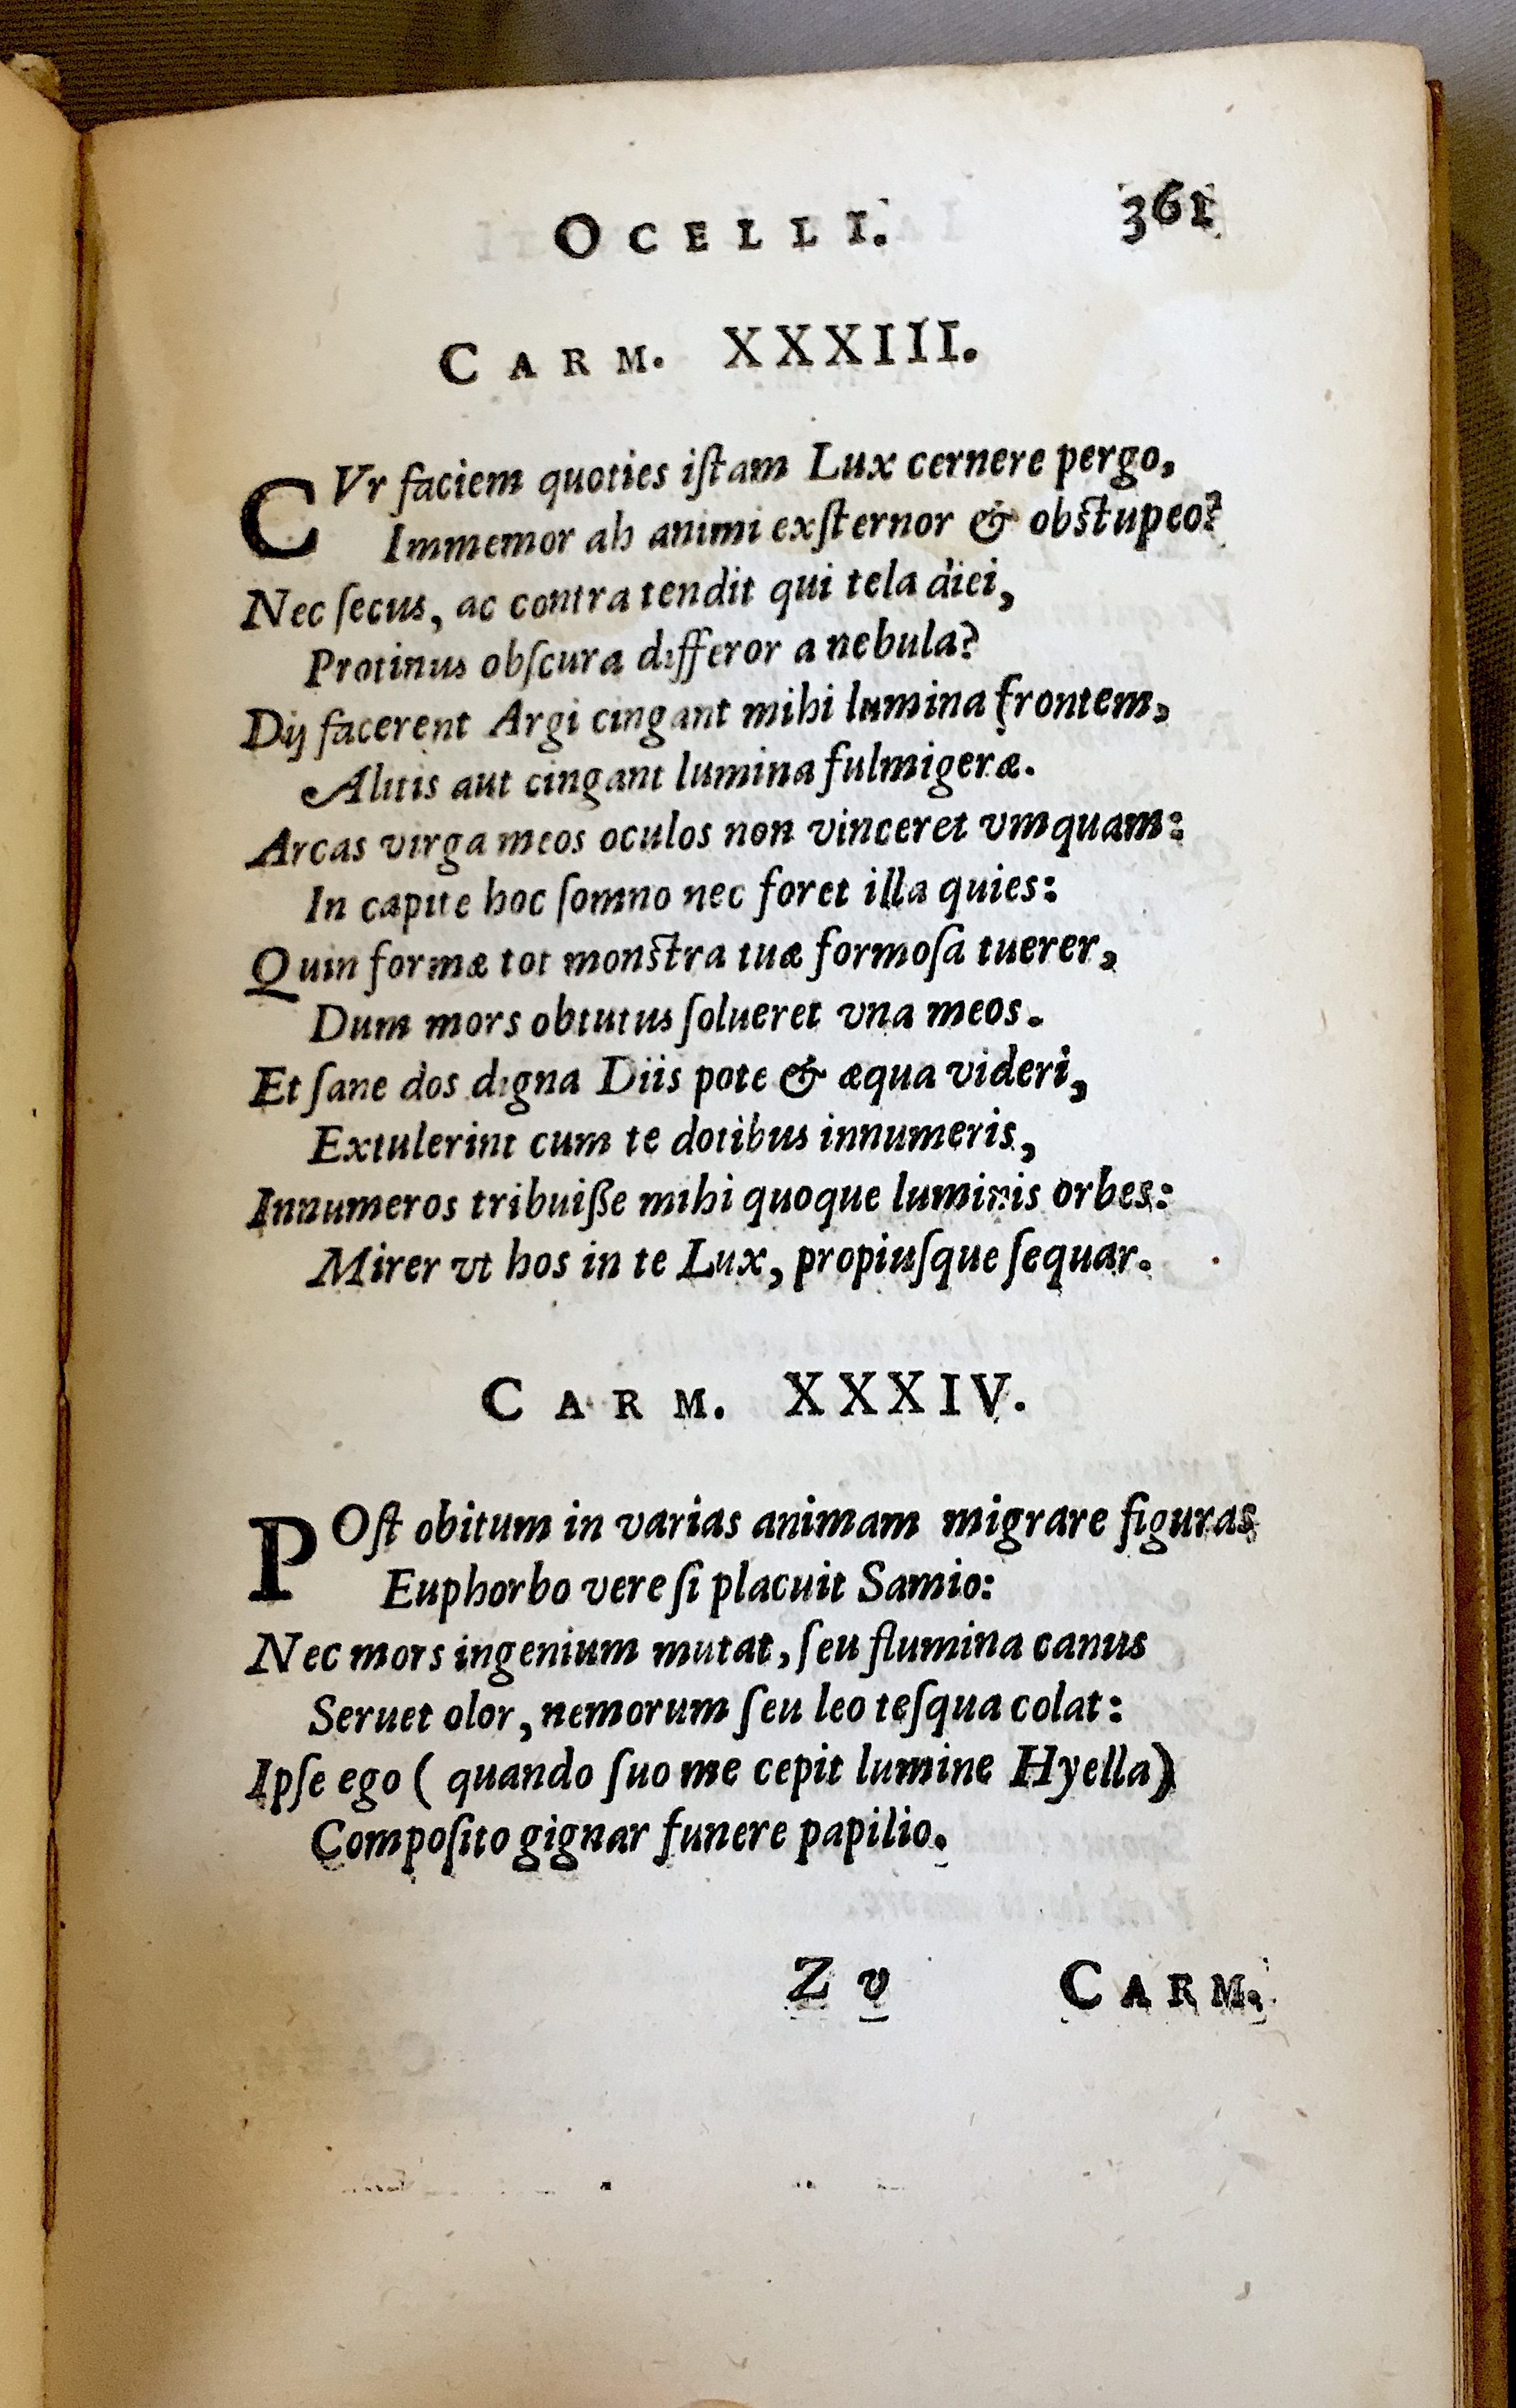 OCELLI. 361
CARM. XXXIII.
CVr faciem quoties iſtam Lux cernere pergo,
Immemor ah animi exſternor & obſtupeo?
Nec ſecus, ac contra tendit qui tela diei,
Protinus obſcura differor a nebula?
Dij facerent Argi cingant mihi lumina frontem,
Alitis aut cingant lumina fulmigeræ.
Arcas virga meos oculos non vinceret vmquam:
In capite hoc ſomno nec foret illa quies:
Quin formæ tot monſtra tuæ formoſa tuerer,
Dum mors obtutus ſolueret vna meos.
Et ſane dos digna Diis pote & æqua videri,
Extulerint cum te dotibus innumeris,
Innumeros tribuiße mihi quoque luminis orbes:
Mirer vt hos in te Lux, propiuſque ſequar.
CARM. XXXIV.
POſt obitum in varias animam migrare figuras
Euphorbo vere ſi placuit Samio:
Nec mors ingenium mutat, ſeu flumina canus
Seruet olor, nemorum ſeu leo teſqua colat:
Ipſe ego (quando ſuo me cepit lumine Hyella)
Compoſito gignar funere papilio.
Z v CARM.